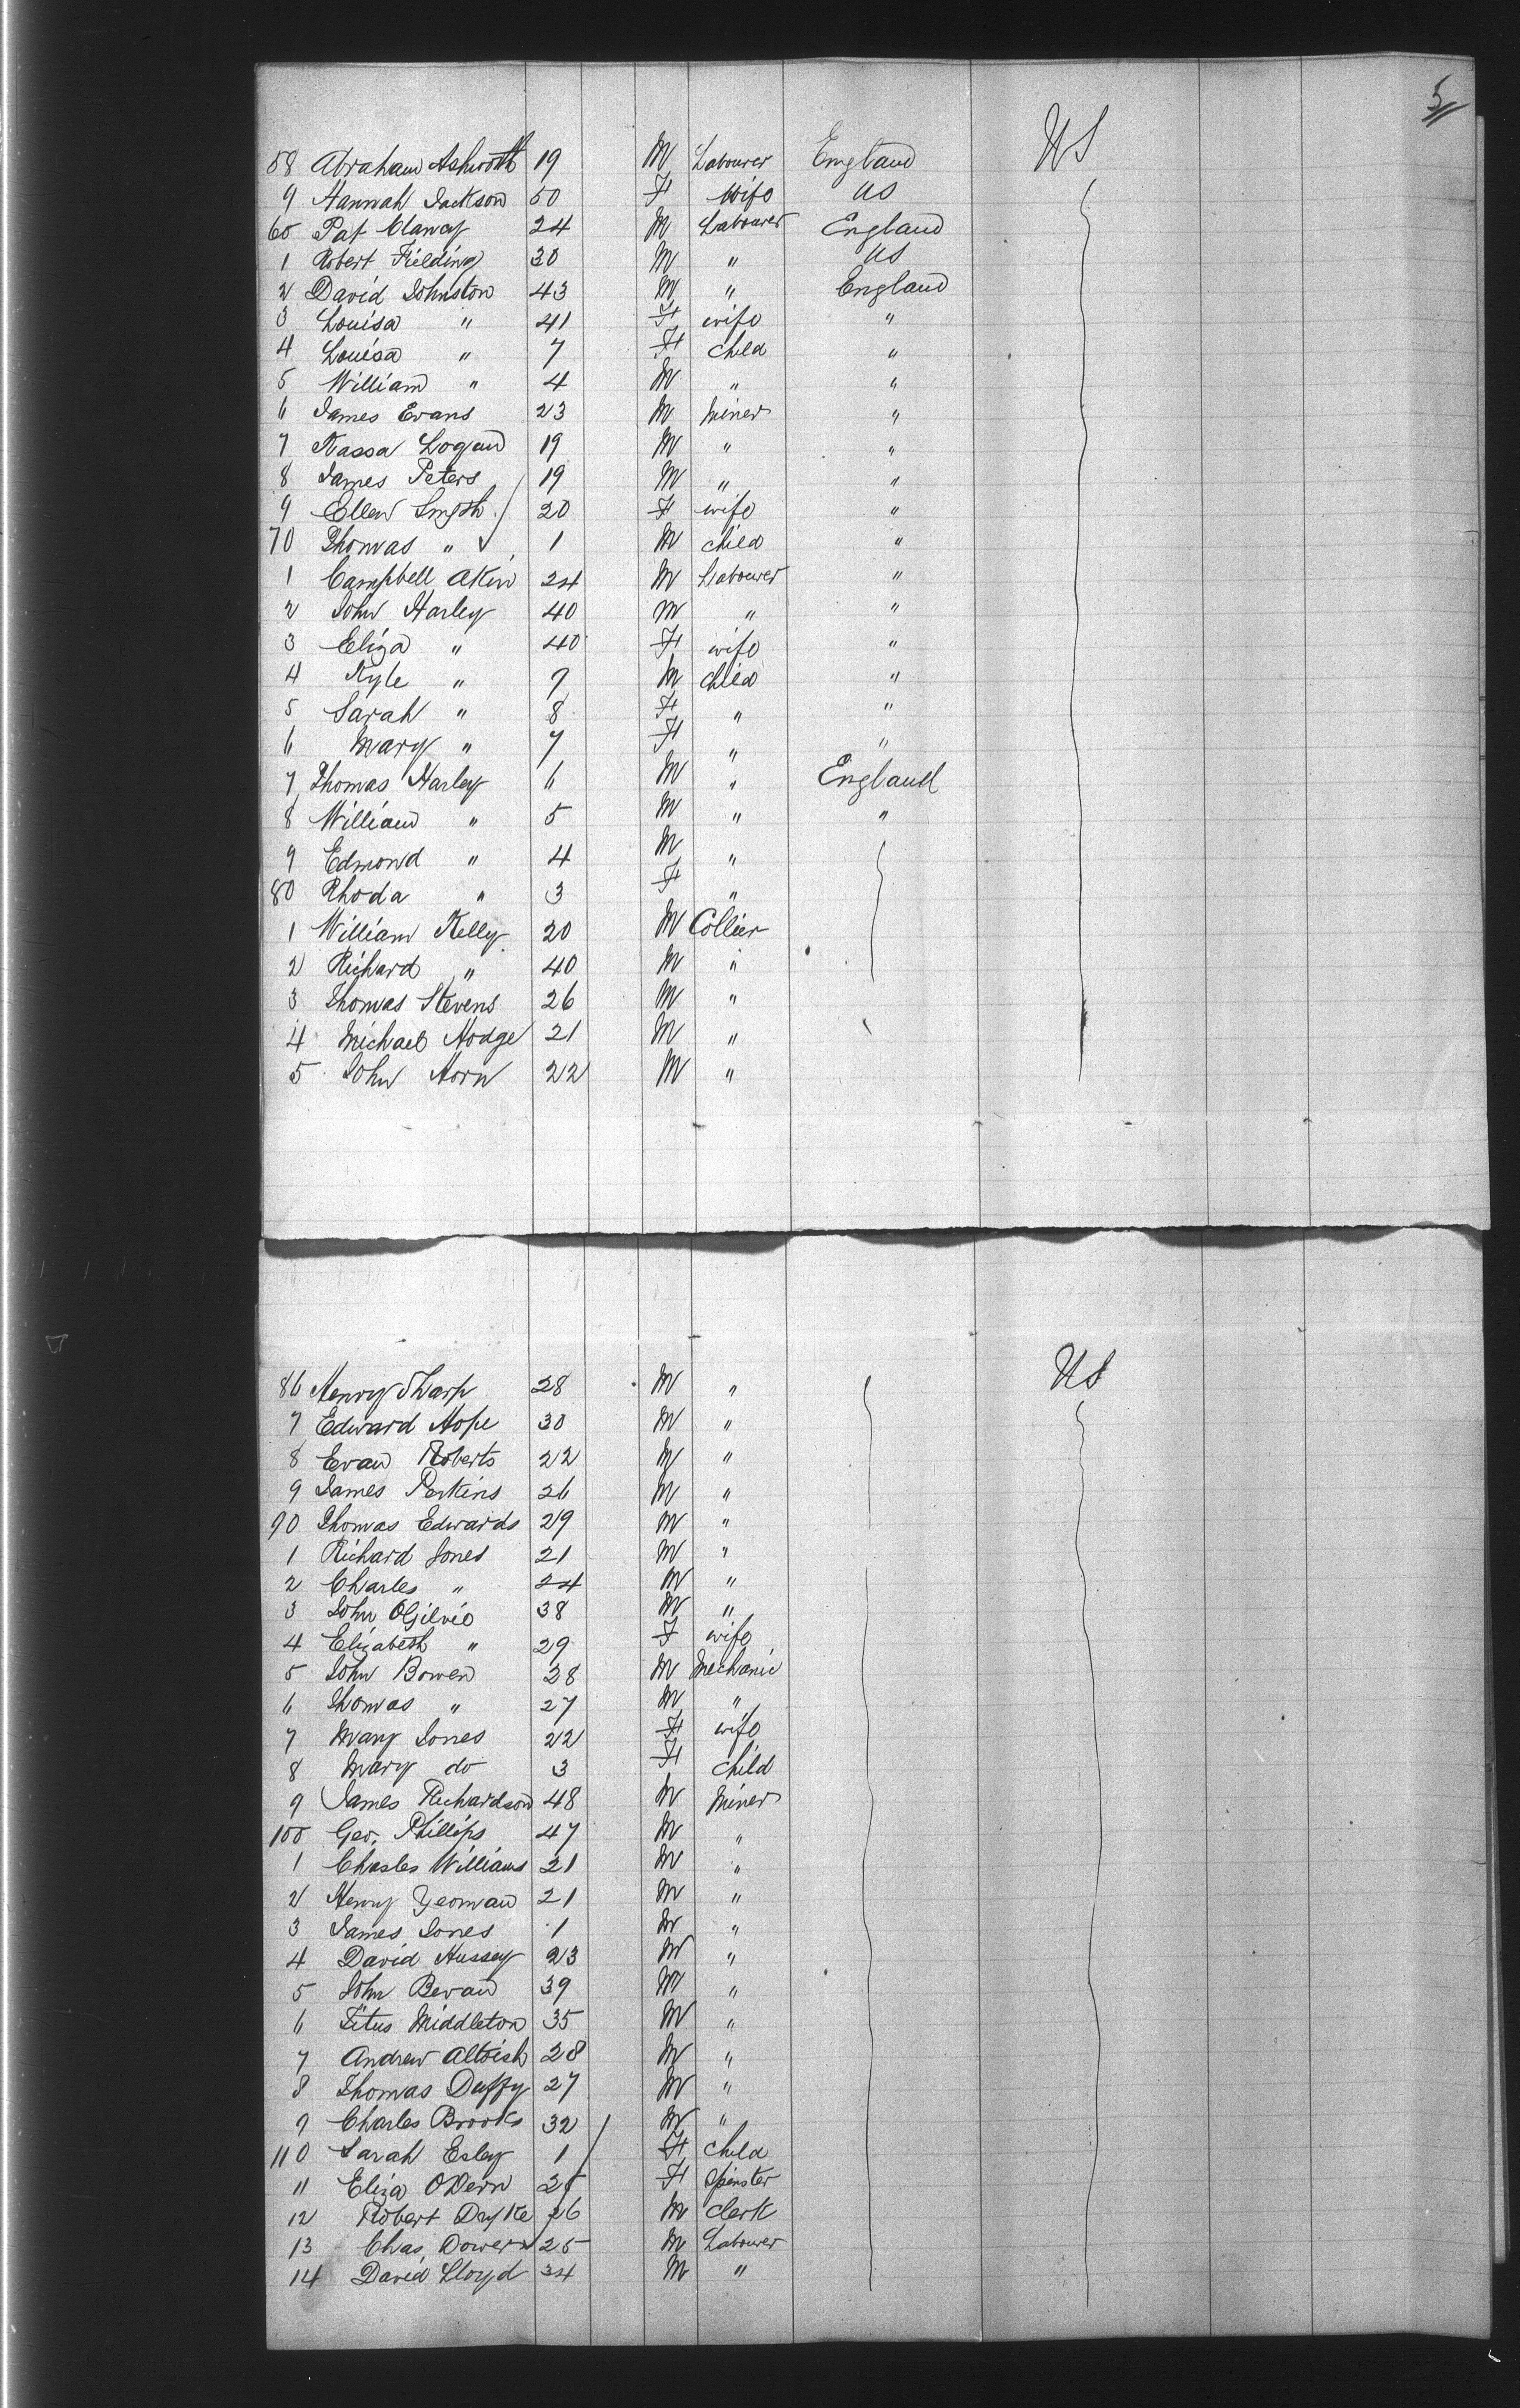 5
58 Abraham Ashworth 19 M Labourer England US
9 Hannah Jackson 50 F Wife US
60 Pat Clancy 24 M Labourer England
1 Robert Fielding 30 M " US
2 David Johnston 43 M " England
3 Louisa " 41 F wife "
4 Louisa " 7 F Child "
5 William " 4 M " "
6 James Evans 23 M Miner "
7 Logan 19 M " "
8 James Peters 19 M " "
9 Ellen Smyth 20 F wife "
70 Thomas " 1 M Child "
1 Campbell Akin 24 M Labourer "
2 John Harley 40 M " "
3 Eliza " 40 F wife "
4 Kyle " 9 M Child "
5 Sarah " 8 F " "
6 Mary " 7 F " "
7 Thomas Harley 6 M " England
8 William " 5 M " "
9 Edmond " 4 M "
80 Rhoda " 3 F "
1 William Kelly 20 M Collier
2 Richard " 40 M "
3 Thomas Stevens 26 M "
4 Michael Hodge 21 M "
5 John Horn 22 M "
86 Henry Sharp 28 M " US
7 Edward Hope 30 M "
8 Evan Roberts 22 M "
9 James Perkins 26 M "
90 Thomas Edwards 29 M "
1 Richard Jones 21 M "
2 Charles " 24 M "
3 John OGilvie 38 M "
4 Elizabeth " 29 F wife
5 John Bowen 28 M Mechanic
6 Thomas " 27 M "
7 Mary Jones 22 F wife
8 Mary do 3 F Child
9 James Richardson 48 M Miner
100 Geo. Phillips 47 M "
1 Charles Williams 21 M "
2 Henry Yeoman 21 M "
3 James Jones 1 M "
4 David Hussey 23 M "
5 John Bevan 39 M "
6 Titus Middleton 35 M "
7 Andrew 28 M "
8 Thomas Duffy 27 M "
9 Charles Brooks 32 M "
110 Sarah Esley 1 F Child
11 Eliza F Spinster
12 Robert Dayke 26 M Clerk
13 Chas. Dower 25 M Labourer
14 David Lloyd 34 M "